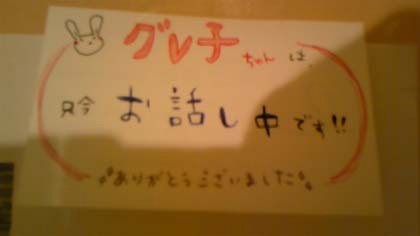 グレ子ちゃんは、
只今お話し中です!!
ありがとうございました